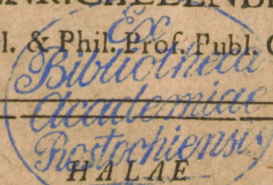 l. & Phil. Prof. Publ.
Ex
Bibliotheca
Academiae
Rostochiensis
HALAE